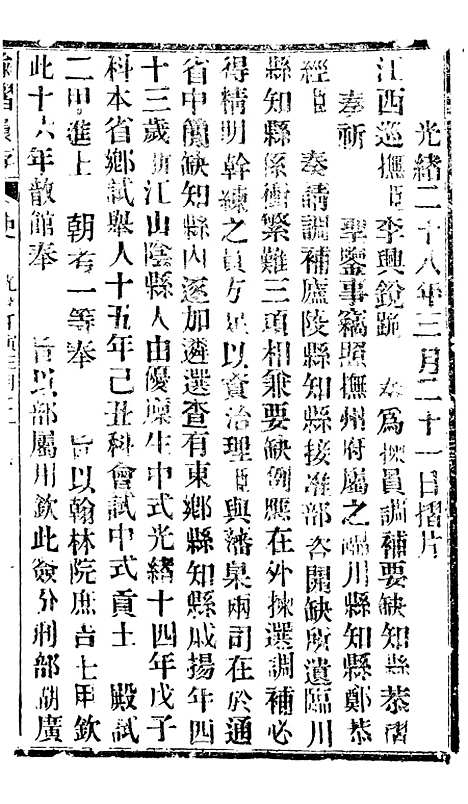 光緒二十八年三月二十一日摺片
江西巡撫臣李興銳跪 奏爲揀員調補要缺知縣恭摺
奏祈 聖鑒事竊照撫州府屬之臨川縣知縣鄭恭
經臣 奏請調補廬陵縣知縣接准部咨開缺所遺臨川
縣知縣係衝繁難三項相兼要缺例應在外揀選調補必
得精明幹練之員方足以資治理臣與藩臬兩司在於通
省中簡缺知縣內逐加遴選查有東鄉縣知縣戚揚年四
十三歲浙江山陰縣人由優廩生中式光緒十四年戊子
科本省鄉試舉人十五年己丑科會試中式貢士 殿試
二甲進士 朝考一等奉 旨以翰林院庶吉士用欽
此十六年散館奉 旨以部屬用欽此簽分刑部湖廣